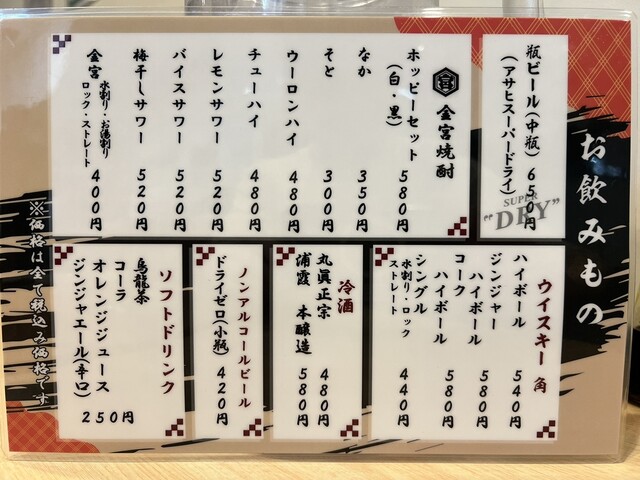 お飲みもの
瓶ビール(中瓶) 650円
(アサヒスーパードライ)
SUPER
"DRY"
金宮焼酎
ホッピーセット 580円
(白・黒)
なか 350円
そと 300円
ウーロンハイ 480円
チューハイ 480円
レモンサワー 520円
バイスサワー 520円
梅干しサワー 520円
金宮 水割り・お湯割り
ロック・ストレート 400円
ウイスキー 角
ハイボール 540円
ジンジャー
ハイボール 580円
コーク
ハイボール 580円
シングル
水割り・ロック
ストレート 440円
冷酒
丸眞正宗 480円
浦霞 本醸造 580円
ノンアルコールビール
ドライゼロ(小瓶) 420円
ソフトドリンク
烏龍茶
コーラ
オレンジジュース
ジンジャエール(辛口)
250円
※価格は全て税込み価格です